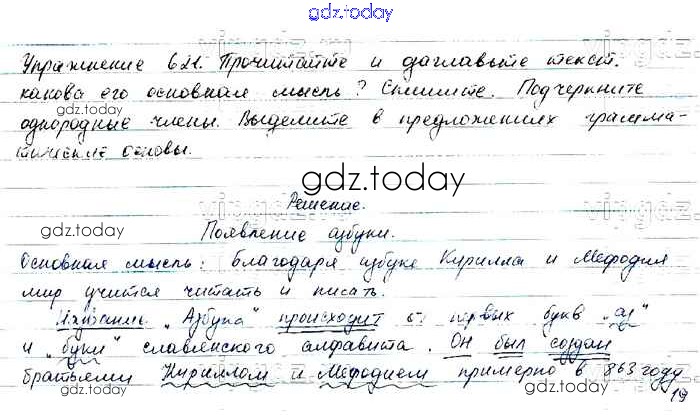 gdz.today
Упражнение 621. Прочитайте и озаглавьте текст.
какова его основная мысль? Спишите. Подчеркните
gdz.today
однородные члены. Выделите в предложениях грамма-
тические основы.
gdz.today
Решение.
gdz.today
Появление азбуки.
gdz.today
Основная мысль: благодаря азбуке Кирилла и Мефодия
мир учится читать и писать.
"Азбука" происходит от первых букв "аз"
и "буки" славянского алфавита. Он был создан
gdz.today
gdz.today
братьями Кириллом и Мефодием примерно в 863 году
19